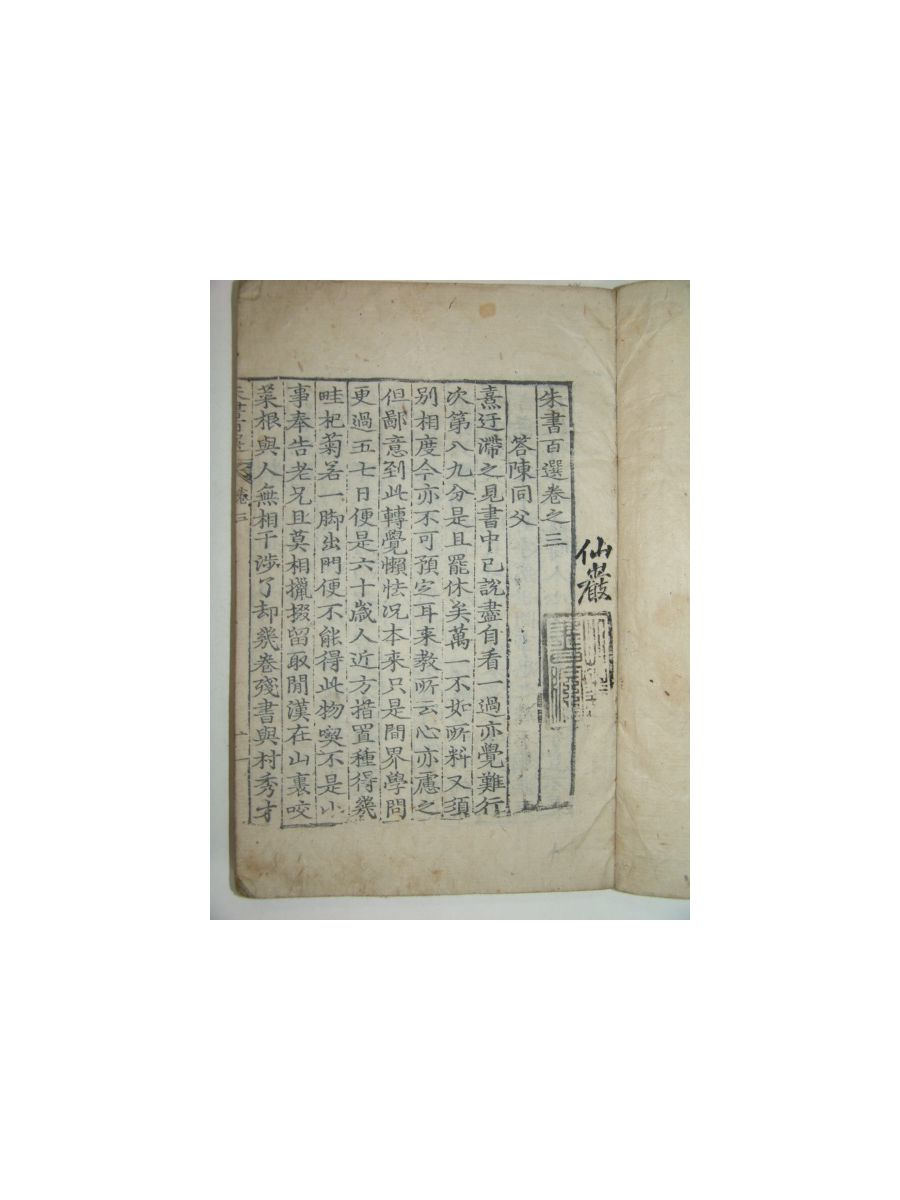 朱書百選卷之三
答陳同父
熹迂滯之見書中已說盡自看一過亦覺難行
次第八九分是且罷休矣萬一不如所料又須
別相度今亦不可預定耳来教所云心亦慮之
但鄙意到此轉覺懶怯况本来只是間界學問
更過五七日便是六十歲人近方措置種得幾
畦杞菊若一脚出門便不能得此物喫不是小
事奉告老兄且莫相攛掇留取閒漢在山裏咬
菜根與人無相干涉了却幾卷殘書與村秀才
仙巖